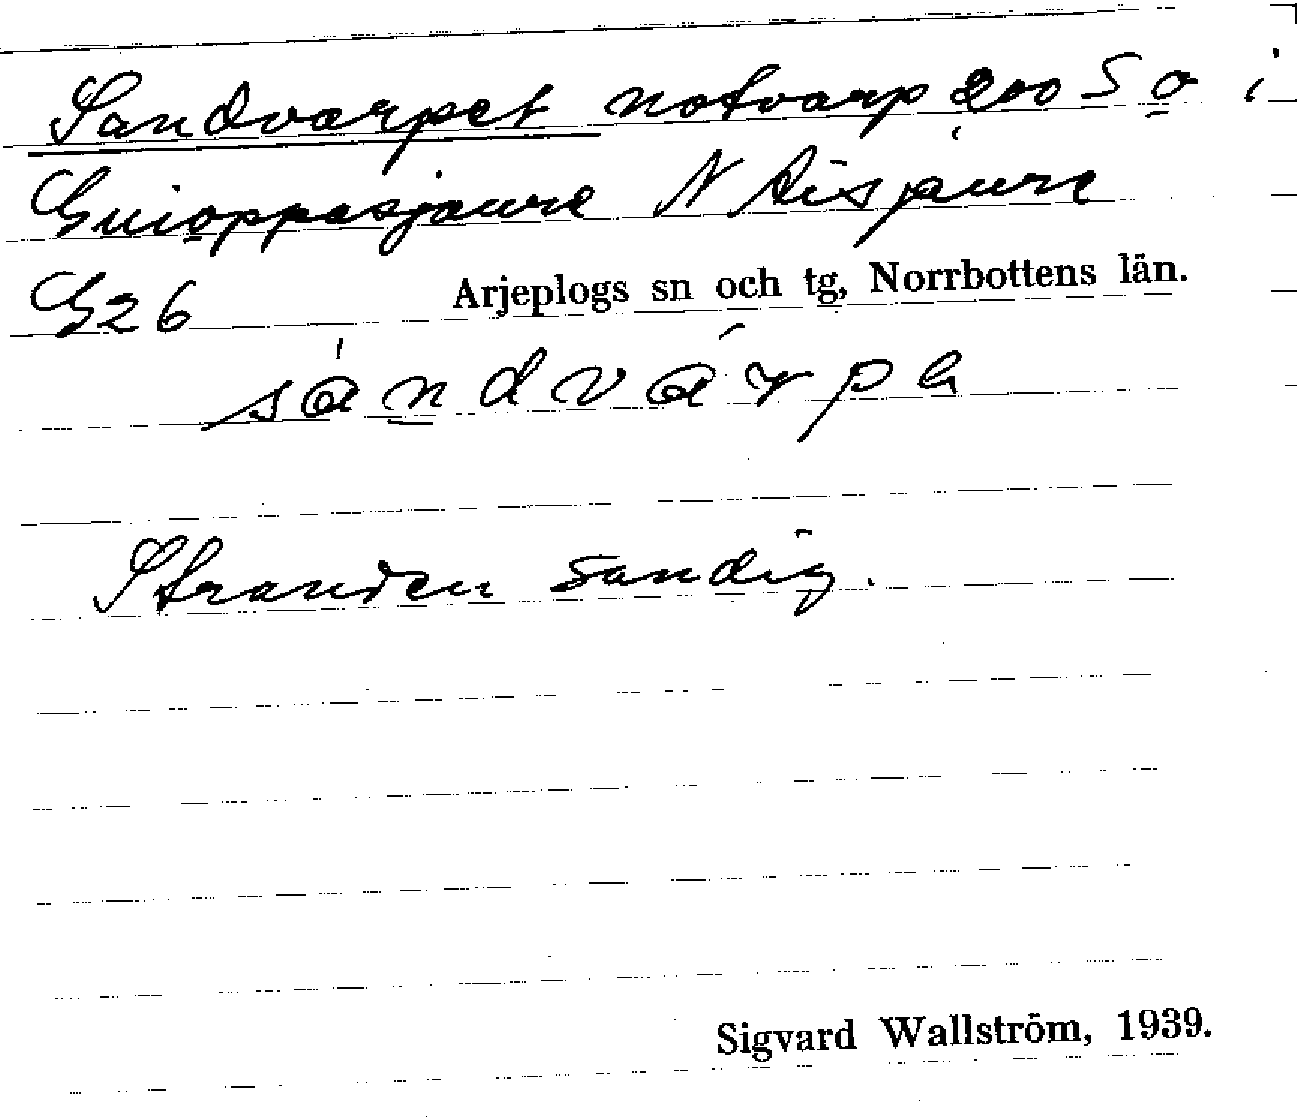 Sandvarpet notvarp 200 S o i
Guioppasjaure N Aisjaure
G26 Arjeplogs sn och tg, Norrbottens län.
sandvarpa
Stranden sandig.
Sigvard Wallström, 1939.